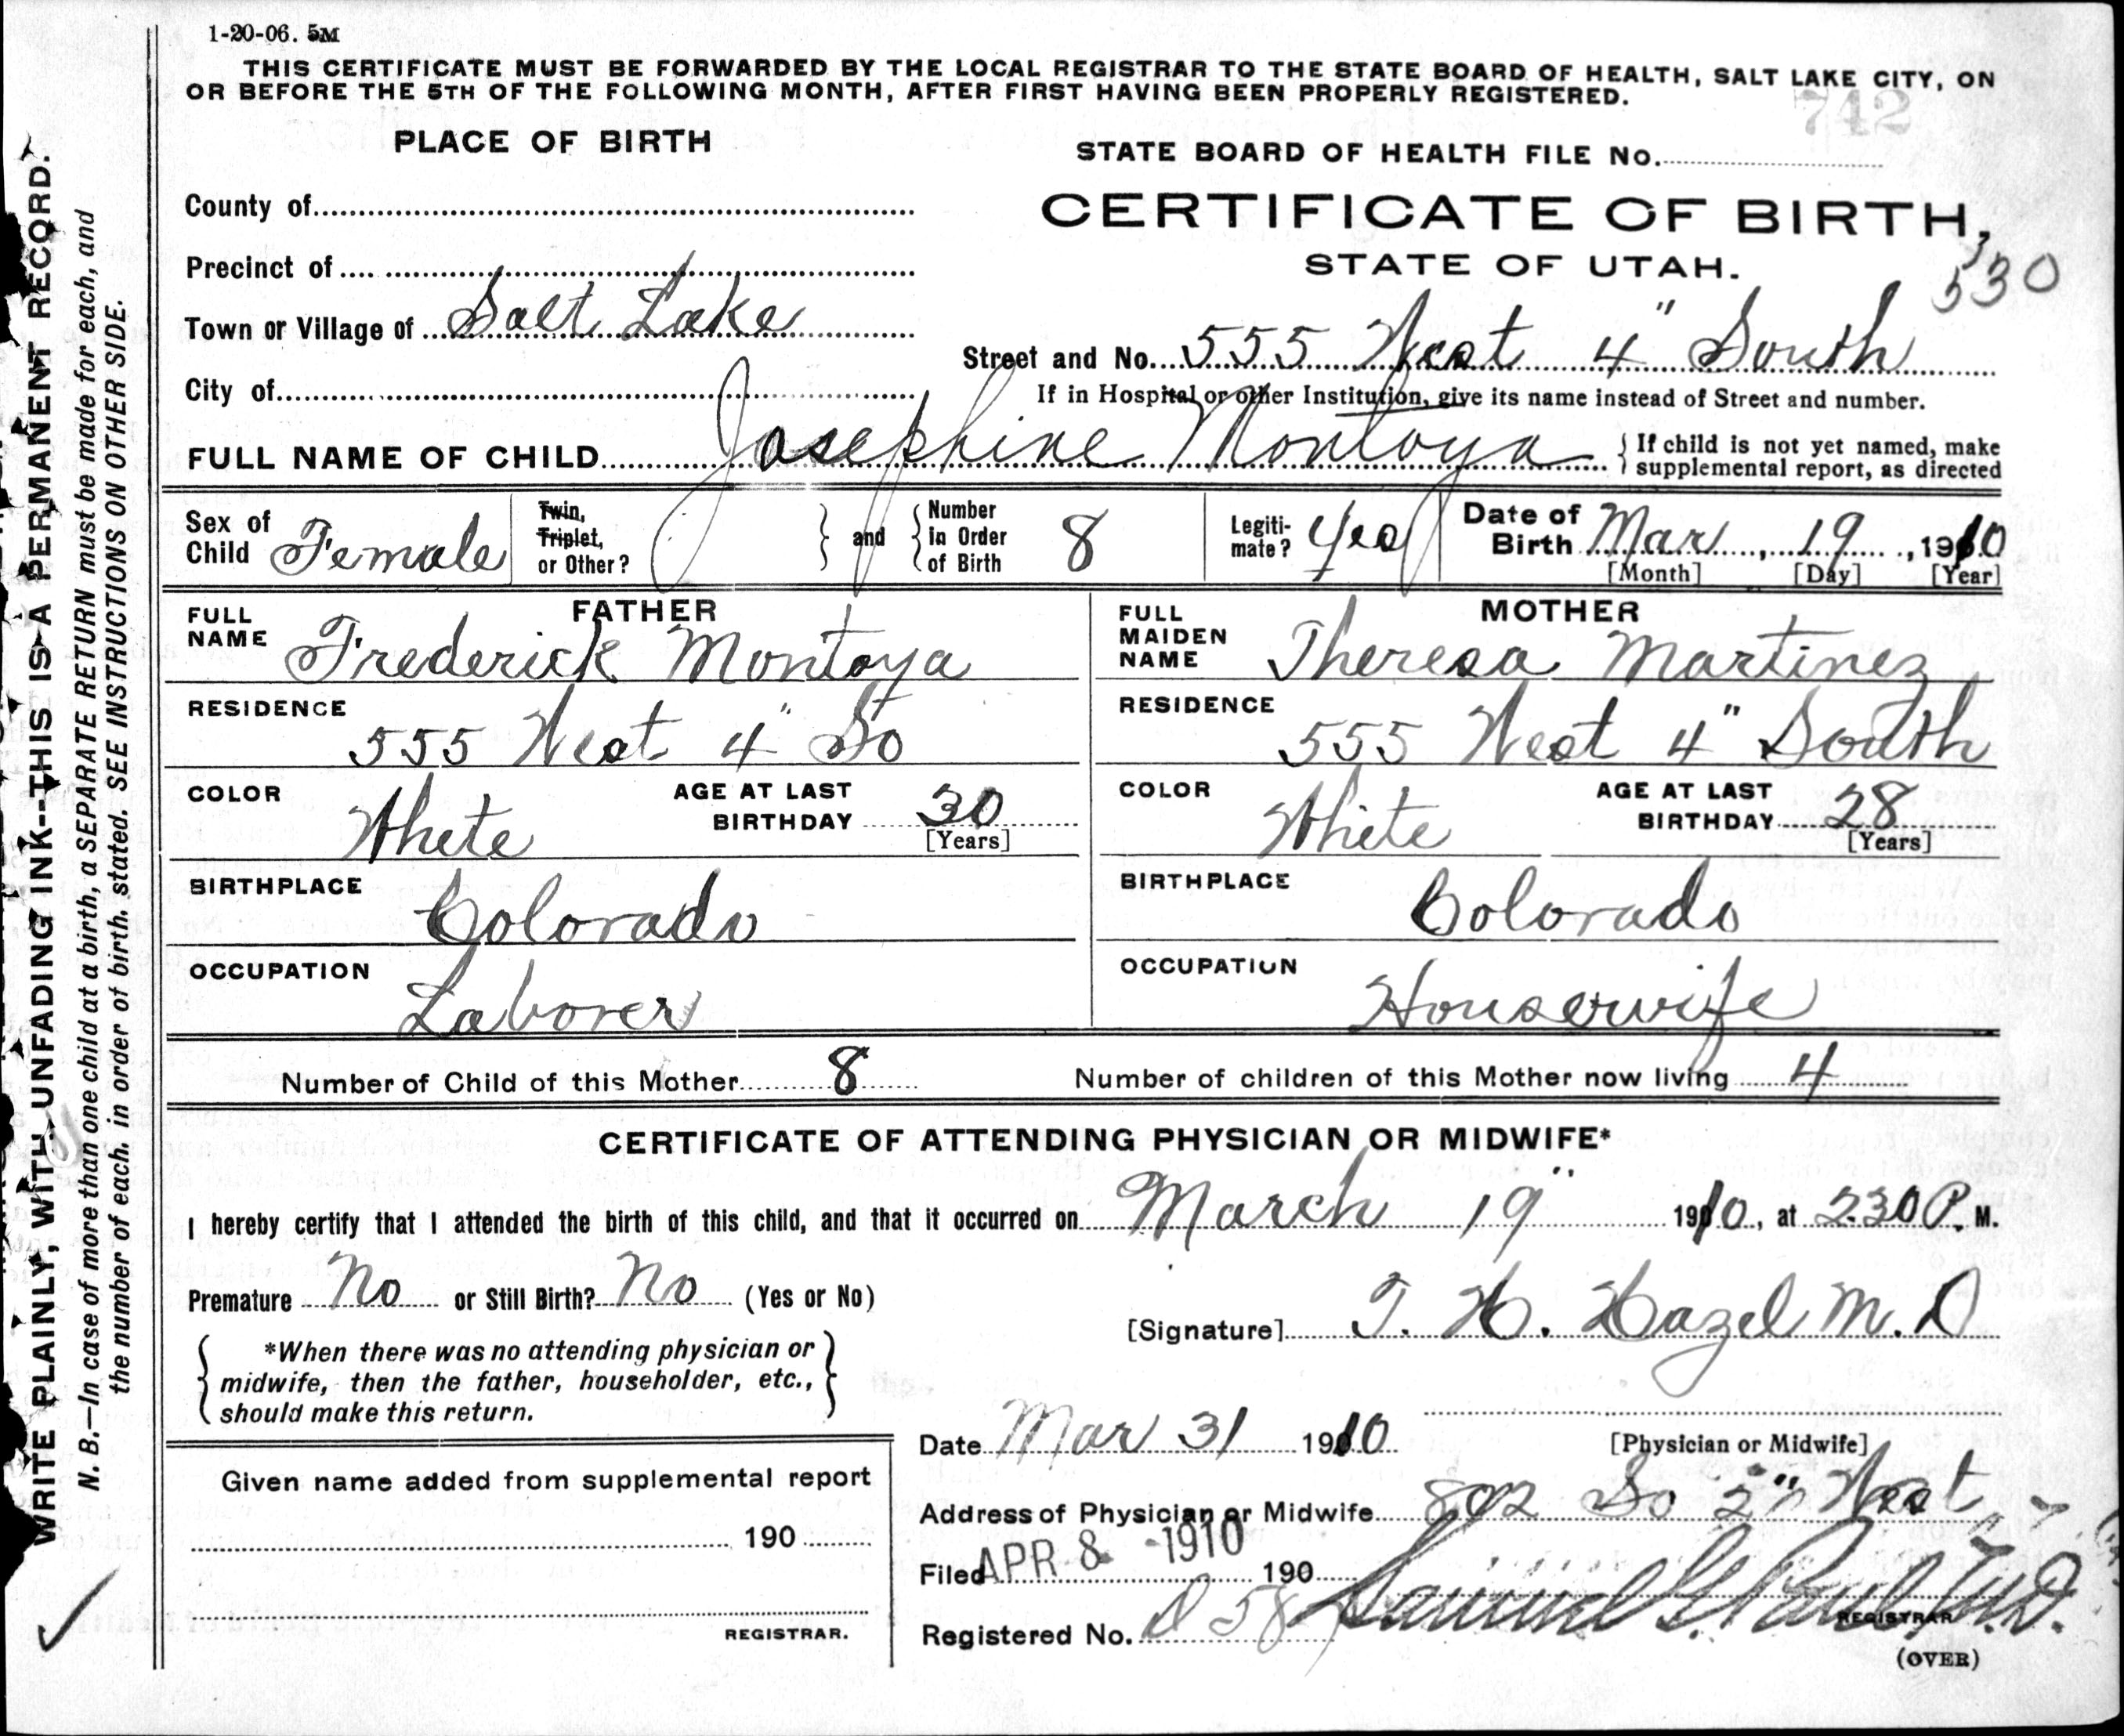 1-20-06. 5M
THIS CERTIFICATE MUST BE FORWARDED BY THE LOCAL REGISTRAR TO THE STATE BOARD OF HEALTH, SALT LAKE CITY, ON
OR BEFORE THE 5TH OF THE FOLLOWING MONTH, AFTER FIRST HAVING BEEN PROPERLY REGISTERED.
742
PLACE OF BIRTH
STATE BOARD OF HEALTH FILE No.
County of
CERTIFICATE OF BIRTH,
Precinct of
STATE OF UTAH.
530
Town or Village of Salt Lake
Street and No. 555 West 4" South
City of
If in Hospital or other Institution, give its name instead of Street and number.
FULL NAME OF CHILD Josephine Montoya { If child is not yet named, make
supplemental report, as directed
Sex of
Child Female
Twin,
Triplet,
or Other?
} and {
Number
in Order
of Birth 8
Legiti-
mate? Yes
Date of
Birth Mar, 19, 1910
[Month] [Day] [Year]
FATHER
FULL
NAME Frederick Montoya
MOTHER
FULL
MAIDEN
NAME Theresa Martinez
RESIDENCE
555 West 4" So
RESIDENCE
555 West 4" South
COLOR White
AGE AT LAST
BIRTHDAY 30
[Years]
COLOR White
AGE AT LAST
BIRTHDAY 28
[Years]
BIRTHPLACE
Colorado
BIRTHPLACE
Colorado
OCCUPATION
Laborer
OCCUPATION
Housewife
Number of Child of this Mother 8 Number of children of this Mother now living 4
CERTIFICATE OF ATTENDING PHYSICIAN OR MIDWIFE*
I hereby certify that I attended the birth of this child, and that it occurred on March 19" 1910, at 230 P. M.
Premature No or Still Birth? No (Yes or No)
[Signature] T. H. Hazel M. D
*When there was no attending physician or
midwife, then the father, householder, etc.,
should make this return.
Date Mar 31 1910
[Physician or Midwife]
Given name added from supplemental report
190
REGISTRAR.
Address of Physician or Midwife 802 So 2" West
Filed APR 8 - 1910 190
Registered No. D 58
REGISTRAR
(OVER)
WRITE PLAINLY, WITH UNFADING INK--THIS IS A PERMANENT RECORD.
N. B.—In case of more than one child at a birth, a SEPARATE RETURN must be made for each, and
the number of each, in order of birth, stated. SEE INSTRUCTIONS ON OTHER SIDE.